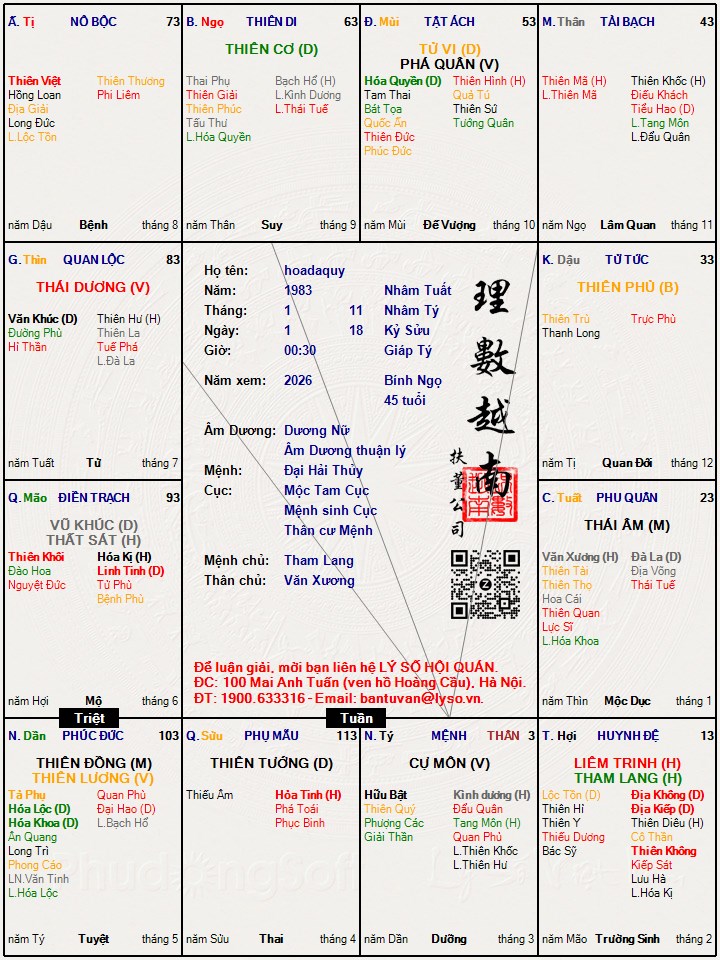 Ấ. Tị NÔ BỘC 73
Thiên Việt Thiên Thương
Hồng Loan Phi Liêm
Địa Giải
Long Đức
L.Lộc Tồn
năm Dậu Bệnh tháng 8
B. Ngọ THIÊN DI 63
THIÊN CƠ (D)
Thai Phụ Bạch Hổ (H)
Thiên Giải L.Kình Dương
Thiên Phúc L.Thái Tuế
Tấu Thư
L.Hóa Quyền
năm Thân Suy tháng 9
Đ. Mùi TẬT ÁCH 53
TỬ VI (D)
PHÁ QUÂN (V)
Hóa Quyền (D) Thiên Hình (H)
Tam Thai Quả Tú
Bát Tọa Thiên Sứ
Quốc Ấn Tướng Quân
Thiên Đức
Phúc Đức
năm Mùi Đế Vượng tháng 10
M. Thân TÀI BẠCH 43
Thiên Mã (H) Thiên Khốc (H)
L.Thiên Mã Điếu Khách
Tiểu Hao (D)
L.Tang Môn
L.Đẩu Quân
năm Ngọ Lâm Quan tháng 11
G. Thìn QUAN LỘC 83
THÁI DƯƠNG (V)
Văn Khúc (D) Thiên Hư (H)
Đường Phù Thiên La
Hỉ Thần Tuế Phá
L.Đà La
năm Tuất Tử tháng 7
Họ tên: hoadaquy
Năm: 1983 Nhâm Tuất
Tháng: 1 11 Nhâm Tý
Ngày: 1 18 Kỷ Sửu
Giờ: 00:30 Giáp Tý
Năm xem: 2026 Bính Ngọ
45 tuổi
Âm Dương: Dương Nữ
Âm Dương thuận lý
Mệnh: Đại Hải Thủy
Cục: Mộc Tam Cục
Mệnh sinh Cục
Thân cư Mệnh
Mệnh chủ: Tham Lang
Thân chủ: Văn Xương
理數越南
扶董公司
Để luận giải, mời bạn liên hệ LÝ SỐ HỘI QUÁN.
ĐC: 100 Mai Anh Tuấn (ven hồ Hoàng Cầu), Hà Nội.
ĐT: 1900.633316 - Email: bantuvan@lyso.vn.
K. Dậu TỬ TỨC 33
THIÊN PHỦ (B)
Thiên Trù Trực Phù
Thanh Long
năm Tị Quan Đới tháng 12
Q. Mão ĐIỀN TRẠCH 93
VŨ KHÚC (D)
THẤT SÁT (H)
Thiên Khôi Hóa Kị (H)
Đào Hoa Linh Tinh (D)
Nguyệt Đức Tử Phù
Bệnh Phù
năm Hợi Mộ tháng 6
C. Tuất PHU QUÂN 23
THÁI ÂM (M)
Văn Xương (H) Đà La (D)
Thiên Tài Địa Võng
Thiên Thọ Thái Tuế
Hoa Cái
Thiên Quan
Lực Sĩ
L.Hóa Khoa
năm Thìn Mộc Dục tháng 1
Triệt
Tuần
N. Dần PHÚC ĐỨC 103
THIÊN ĐỒNG (M)
THIÊN LƯƠNG (V)
Tả Phụ Quan Phủ
Hóa Lộc (D) Đại Hao (D)
Hóa Khoa (D) L.Bạch Hổ
Ân Quang
Long Trì
Phong Cáo
LN.Văn Tinh
L.Hóa Lộc
năm Tý Tuyệt tháng 5
Q. Sửu PHỤ MẪU 113
THIÊN TƯỚNG (D)
Thiếu Âm Hỏa Tinh (H)
Phá Toái
Phục Binh
năm Sửu Thai tháng 4
N. Tý MỆNH THÂN 3
CỰ MÔN (V)
Hữu Bật Kình dương (H)
Thiên Quý Đẩu Quân
Phượng Các Tang Môn (H)
Giải Thần Quan Phủ
L.Thiên Khốc
L.Thiên Hư
năm Dần Dưỡng tháng 3
T. Hợi HUYNH ĐỆ 13
LIÊM TRINH (H)
THAM LANG (H)
Lộc Tồn (D) Địa Không (D)
Thiên Hỉ Địa Kiếp (D)
Thiên Y Thiên Diêu (H)
Thiếu Dương Cô Thần
Bác Sỹ Thiên Không
Kiếp Sát
Lưu Hà
L.Hóa Kị
năm Mão Trường Sinh tháng 2